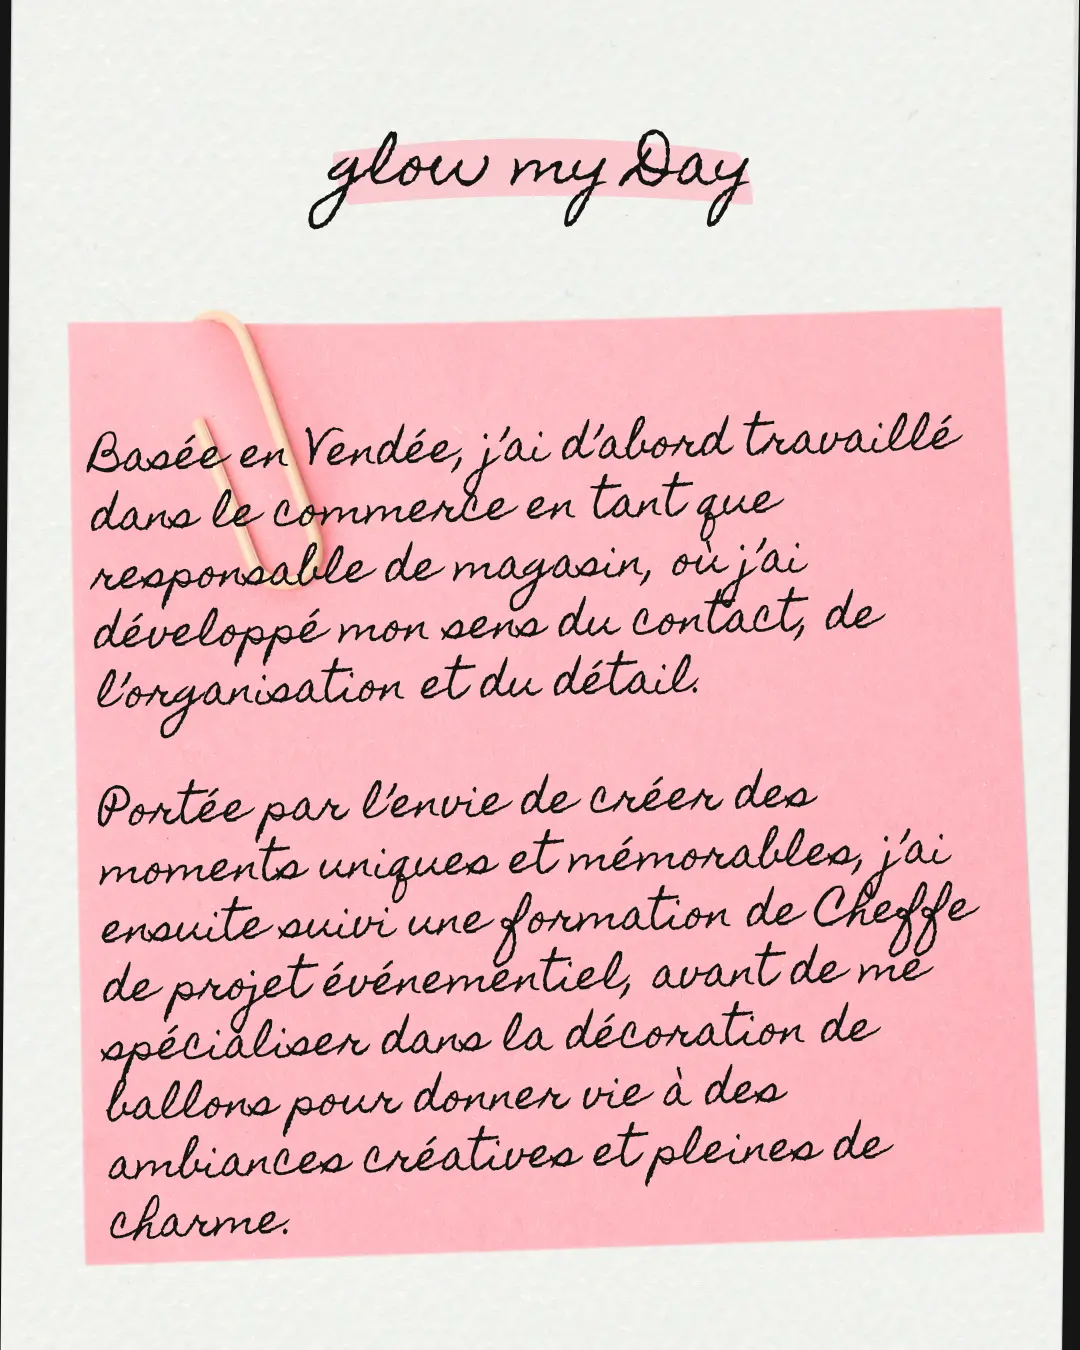 glow my Day
Basée en Vendée, j'ai d'abord travaillé
dans le commerce en tant que
responsable de magasin, où j'ai
développé mon sens du contact, de
l'organisation et du détail.
Portée par l'envie de créer des
moments uniques et mémorables, j'ai
ensuite suivi une formation de Cheffe
de projet événementiel, avant de me
spécialiser dans la décoration de
ballons pour donner vie à des
ambiances créatives et pleines de
charme.